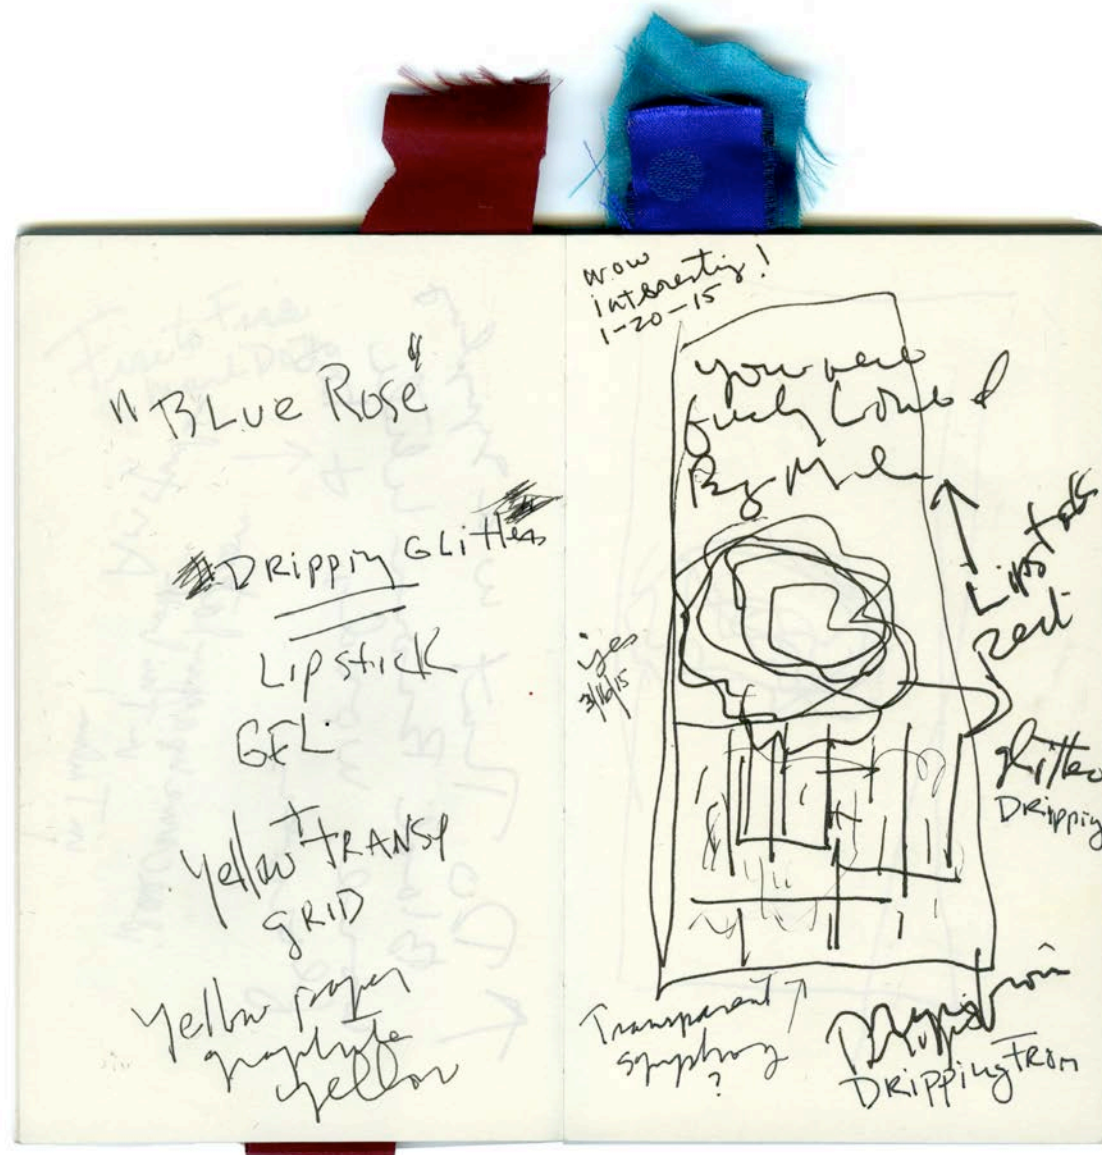 "BLUE ROSE"
DRIPPING GLitter
LipstICK
GEL
Yellow + TRANSP
GRID
Yellow paper
graphite
yellow
wow
interesting!
1-20-15
you were
Loved
By Me
Lipstick
Red
yes
3/16/15
glitter
DRipping
Transparent
symphony
?
From
DRipping FROM